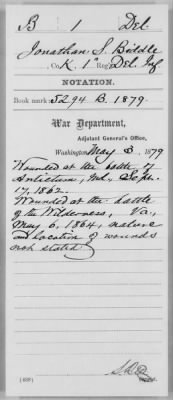 B 1 Del
Jonathan S. Biddle
Co. K, 1" Reg Del Inf
NOTATION.
Book mark: 5294 B. 1879
War Department,
Adjutant General's Office,
Washington May 3, 1879
Wounded at the battle of
Antietam, Md., Sept.
17, 1862.
Wounded at the battle
of the Wilderness, Va.,
May 6, 1864, nature
and location of wounds
not stated
(658)
Copyist.